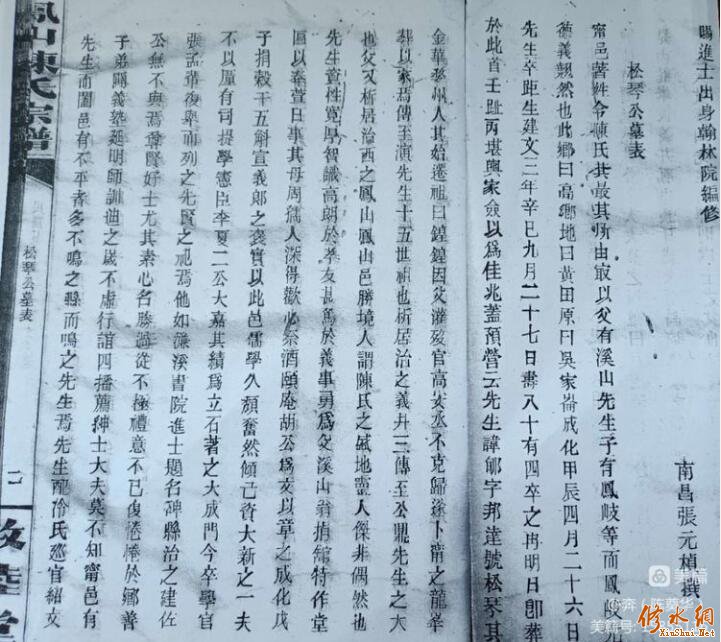 賜進士出身翰林院編修
南昌張元禎撰
松琴公墓表
甯邑著姓今陳氏其最其所由㝡以父有溪山先生子有鳳岐等而鳳
德義飄然也此鄉曰高鄉地曰黃田原曰吳家崙成化甲辰四月二十六日
先生卒距生建文三年辛巳九月二十七日壽八十有四卒之再明日卽葬
於此首壬趾丙堪輿家僉以爲佳兆蓋預營云先生諱郇字邦達號松琴其
金華婺州人其始遷祖曰鏜鏜因父灌歿官高安丞不克歸遂卜甯之龍峯
葬以家焉傳至演先生十五世祖也析居治之義井三傳至公鼎先生之大
也父又析居治西之鳳山鳳山邑勝境人謂陳氏之地靈人傑非偶然也
先生資性寬厚智識高朗於孝友甚篤於義事勇爲父溪山翁捐館特作堂
匾以奉萱日事其母周孺人深得歡心祭酒頤庵胡公爲文以章之成化戊
子捐穀千五斛宣義郎之錫實以此邑儒學久頹奮然傾己資大新之一夫
不以厪有司提學憲臣李夏二公大嘉其績爲立石著之大成門今卒學官
張孟華復舉而列之先賢之祀焉他如濂溪書院進士題名碑縣治之建佐
公無不與焉尊賢好士尤其素心名勝過從不極禮意不已復惓惓於鄉善
子弟闢義塾延明師訓迪之歲不虛行誼四播薦紳士大夫莫不知甯邑有
先生而闔邑有不平者多不鳴之縣而鳴之先生焉先生配冷氏巡官紹文
鳳山陳氏宗譜
松琴公墓表
敦睦堂
美篇
修水网
XinShui.Net